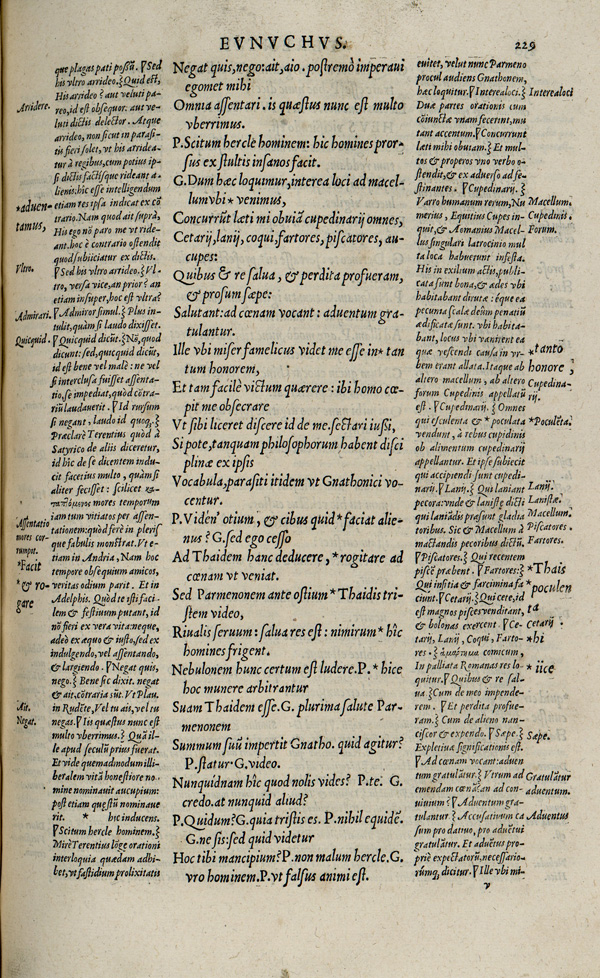 EVNVCHVS.
229
que plagas pati possu. Sed
his vltro arrideo. Quid est,
His arrideo? aut veluti pa-
reo, id est obsequor: aut ve-
luti dictis delector. Atque
arrideo, non sicut in parasi-
tis fieri solet, vt his arridea-
tur à regibus, cum potius ip-
si dictis factisque rideant a-
lienis: hic esse intelligendum
etiam res ipsa indicat ex cō
trario. Nam quod ait suprà,
His ego nō paro me vt ride-
ant. hoc è contrario ostendit
quod subiiciatur ex dictis.
Sed his vltro arrideo. Vl-
tro, versa vice, an prior? an
etiam insuper, hoc est vltra?
Admiror simul. Plus in-
tulit, quàm si laudo dixisset.
Quicquid dicūt. Nō, quod
dicunt: sed, quicquid dicūt,
id est bene vel malè: ne vel
si interclusa fuisset assenta-
tio, se impediat, quòd cōtra-
riū laudauerit. Id rursum
si negant, laudo id quoq.
Præclarè Terentius quòd à
Satyrico de aliis diceretur,
id hîc de se dicentem indu-
cit facetius multo, quàm si
aliter fecisset: scilicet
mores temporum
iam tum vitiatos per assen-
tationem: quòd ferè in pleris
que fabulis monstrat. Vt e-
tiam in Andria, Nam hoc
tempore obsequium amicos,
veritas odium parit. Et in
Adelphis. Quòd te isti faci-
lem & festiuum putant, id
nō fieri ex vera vita: neque
adeò ex æquo & iusto, sed ex
indulgendo, vel assentando,
& largiendo. Negat quis,
nego. Bene sic dixit. negat
& ait. cōtraria sūt. Vt Plau.
in Rudēte, Vel tu ais, vel tu
negas. Iis quæstus nunc est
multo vberrimus. Quā il-
le apud seculū prius fuerat.
Et vide quemadmodum illi-
beralem vitā honestiore no-
mine nominauit aucupium:
post etiam quæstū nominaue
rit. * hic inducens.
Scitum hercle hominem.
Mirè Terentius lōge orationi
interloquia quædam adhi-
bet, vt fastidium prolixitatis
Arridere.
*aduen-
tamus,
Vltro.
Admirari.
Quicquid.
Assentatio
mores cor-
rumpit.
*Facit
*& ro-
gare
Ait.
Negat.
Negat quis, nego: ait, aio. postremò imperaui
egomet mihi
Omnia assentari. is quæstus nunc est multo
vberrimus.
P. Scitum hercle hominem: hic homines pror-
sus ex stultis insanos facit.
G. Dum hæc loquimur, interea loci ad macel-
lum vbi * venimus,
Concurrūt læti mi obuiā cupedinarij omnes,
Cetarij, lanij, coqui, fartores, piscatores, au-
cupes:
Quibus & re salua, & perdita profueram,
& prosum sæpe:
Salutant: ad cœnam vocant: aduentum gra-
tulantur.
Ille vbi miser famelicus videt me esse in * tan
tum honorem,
Et tam facilè victum quærere: ibi homo cœ-
pit me obsecrare
Vt sibi liceret discere id de me. sectari iussi,
Si pote, tanquam philosophorum habent disci
plinæ ex ipsis
Vocabula, parasiti itidem vt Gnathonici vo-
centur.
P. Viden' otium, & cibus quid * faciat alie-
nus? G. sed ego cesso
Ad Thaidem hanc deducere, * rogitare ad
cœnam vt veniat.
Sed Parmenonem ante ostium * Thaidis tri-
stem video,
Riualis seruum: salua res est: nimirum * hîc
homines frigent.
Nebulonem hunc certum est ludere. P. * hice
hoc munere arbitrantur
Suam Thaidem esse. G. plurima salute Par-
menonem
Summum suū impertit Gnatho. quid agitur?
P. statur. G. video.
Nunquidnam hîc quod nolis vides? P. te. G.
credo. at nunquid aliud?
P. Quidum? G. quia tristis es. P. nihil equidē.
G. ne sis: sed quid videtur
Hoc tibi mancipium? P. non malum hercle. G.
vro hominem. P. vt falsus animi est.
euitet, velut nunc Parmeno
procul audiens Gnathonem,
hæc loquitur. Interea loci.
Duæ partes orationis cum
cōiunctæ vnam fecerint, mu
tant accentum. Concurrunt
læti mihi obuiam. Et mul-
tos & properos vno verbo o-
stendit, & ex aduerso ad fe-
stinantes. Cupedinarij.
Varro humanarum rerum, Nu
merius, Equitius Cupes in-
quit, & Romanius Macel-
lus singulari latrocinio mul
ta loca habuerunt infesta.
His in exilium actis, publi-
cata sunt bona, & ædes vbi
habitabant dirutæ: eque ea
pecunia scalæ deûm penatiū
ædificatæ sunt. vbi habita-
bant, locus vbi vænirent ea
quæ vescendi causa in vr-
bem erant allata. Itaque ab
altero macellum, ab altero
forum Cupedinis appellatū
est. Cupedinarij. Omnes
qui esculenta & * poculata
vendunt, à rebus cupidinis
ob alimentum cupedinarij
appellantur. Et ipse subiecit
qui accipiendi sunt cupedi-
narij. Lanij. Qui laniant
pecora: vnde & lanistæ dicti
qui laniādis præsunt gladia
toribus. Sic & Macellum à
mactandis pecoribus dictū.
Piscatores. Qui recentem
piscē præbent. Fartores:
Qui insitia & farcimina fa
ciunt. Cetarij. Qui cete, id
est magnos pisces venditant,
& bolonas exercent. Ce-
tarij, Lanij, Coqui, Farto-
res. comicum,
In palliata Romanas res lo-
quitur. Quibus & re sal-
ua. Cum de meo impende-
rem. Et perdita profue-
ram. Cum de alieno nan-
ciscor & expendo. Sæpe.
Expletiua significationis est.
Ad cœnam vocant: aduen
tum gratulātur. Vtrum ad
emendam cœnā? an ad con-
uiuium? Aduentum gra-
tulantur. Accusatiuum ca
sum pro datiuo, pro aduētui
gratulātur. Et aduētus pro-
priè expectatorū, necessario-
rúmq; dicitur. Ille vbi mi-
v
Interea loci
Macellum.
Cupedinis.
Forum.
*tanto
honore,
Cupedina-
rij.
*Poculēta.
Lanij.
Lanistæ.
Macellum.
Piscatores.
Fartores.
*Thais
*poculen
ta
Cetarij.
*hi
*iice
Sæpe.
Gratulātur
Aduentus.